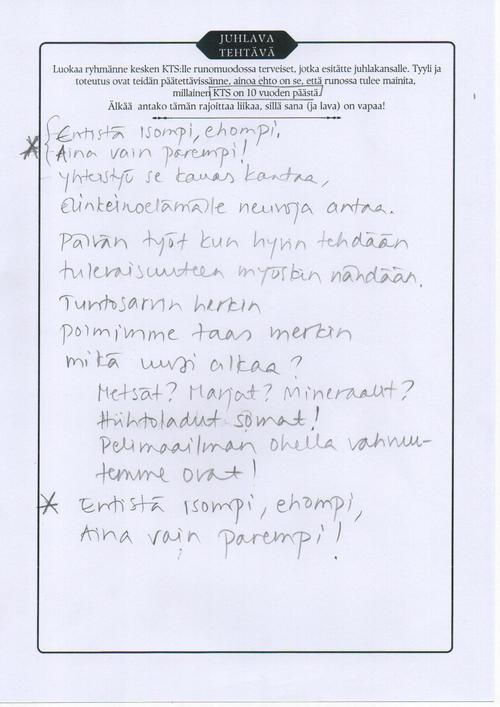 JUHLAVA
TEHTÄVÄ
Luokaa ryhmänne kesken KTS:lle runomuodossa terveiset, jotka esitätte juhlakansalle. Tyyli ja
toteutus ovat teidän päätettävissänne, ainoa ehto on se, että runossa tulee mainita,
millainen KTS on 10 vuoden päästä.
Älkää antako tämän rajoittaa liikaa, sillä sana (ja lava) on vapaa!
Entistä isompi, ehompi.
Aina vain parempi!
yhteistyö se kauas kantaa,
elinkeinoelämälle neuvoja antaa.
Päivän työt kun hyvin tehdään
tulevaisuuteen myöskin nähdään.
Tuntosarvin herkin
poimimme taas merkin
mikä uusi alkaa?
Metsät? Marjat? Mineraalit?
Hiihtoladut somat!
Pelimaailman ohella vahvuu-
temme ovat!
Entistä isompi, ehompi,
Aina vain parempi!